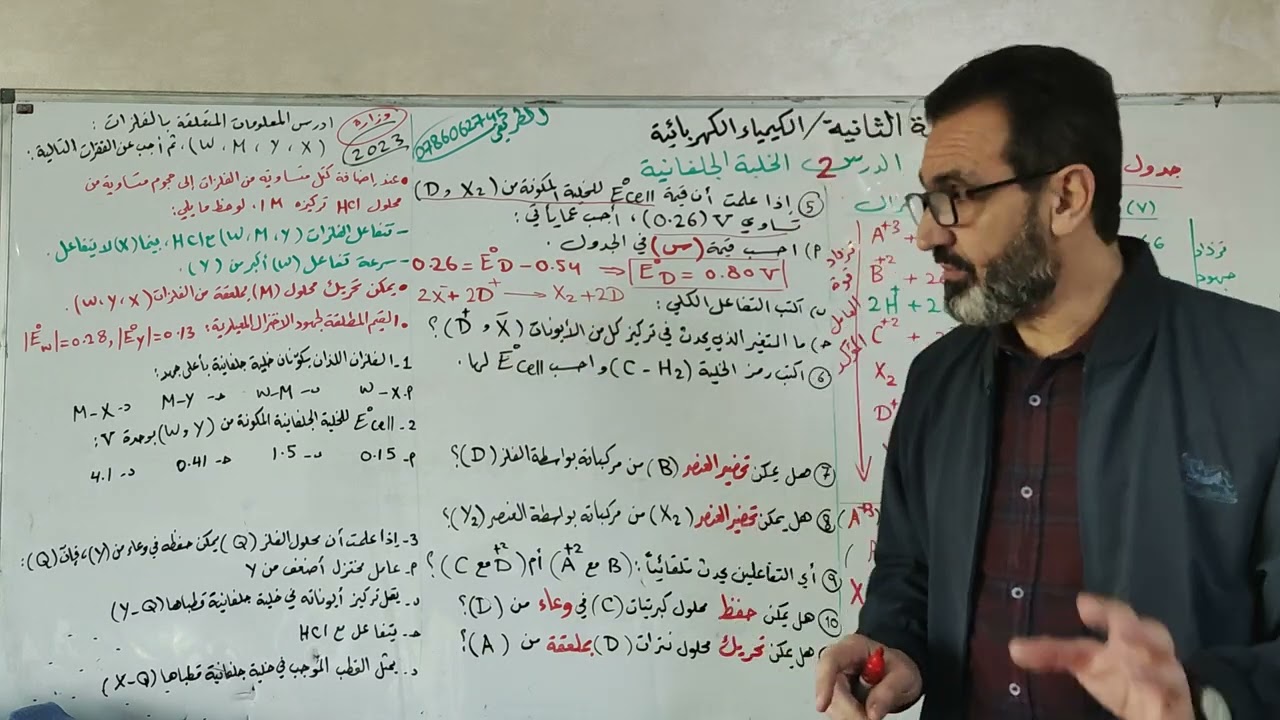 ة الثانية/الكيمياء الكهربائية
الدرس 2 الخلية الجلفانية
الطريفي
0786062745
جدول
(٧)
A+3 +
B+2 +
2H+ + 2
C+2 +
X2
D+
تزداد
قوة
العامل
المؤكسد
تزداد
جهود
5 إذا علمت أن قيمة E°cell للخلية المكونة من (X2 و D)
تساوي 0.26) V)، أجب عما يأتي:
P) احسب قيمة (س) في الجدول.
0.26 = E°D - 0.54 ⇒ E°D = 0.80 V
ب) اكتب التفاعل الكلي: 2X- + 2D+ → X2 + 2D
ج) ما المتغير الذي يحدث في تركيز كل من الأيونات (X- و D+)؟
6 اكتب رمز الخلية (C - H2) و احسب E°cell لها.
7 هل يمكن تحضير العنصر (B) من مركباته بواسطة الفلز (D)؟
8 هل يمكن تحضير العنصر (X2) من مركباته بواسطة العنصر (Y2)؟
9 أي التفاعلين يحدث تلقائياً: (B مع A+2) أم (D+2 مع C)؟
10 هل يمكن حفظ محلول كبريتات (C) في وعاء من (D)؟
هل يمكن تحريك محلول نترات (D) بملعقة من (A)؟
وزارة
2023
ادرس المعلومات المتعلقة بالفلزات:
(W , M , Y , X)، ثم أجب عن الفقرات التالية:
• عند إضافة كتل متساوية من الفلزات إلى حجوم متساوية من
محلول HCl تركيزه 1M، لوحظ ما يلي:
- تتفاعل الفلزات (W , M , Y) مع HCl، بينما (X) لا يتفاعل.
- سرعة تفاعل (W) أكبر من (Y).
• يمكن تحريك محلول (M) بملعقة من الفلزات (W , Y , X).
• القيم المطلقة لجهود الاختزال المعيارية: |E°Y| = 0.13 , |E°W| = 0.28
1- الفلزان اللذان يكوّنان خلية جلفانية بأعلى جهد:
P- W - X ب- W - M ج- M - Y د- M - X
2- E°cell للخلية الجلفانية المكونة من (W و Y) بوحدة V:
P- 0.15 ب- 1.5 ج- 0.41 د- 4.1
3- إذا علمت أن محلول الفلز (Q) يمكن حفظه في وعاء من (Y)، فإن (Q):
P- عامل مختزل أضعف من Y
ب- يقل تركيز أيوناته في خلية جلفانية قطباها (Y-Q)
ج- يتفاعل مع HCl
د- يمثل القطب الموجب في خلية جلفانية قطباها (X-Q)